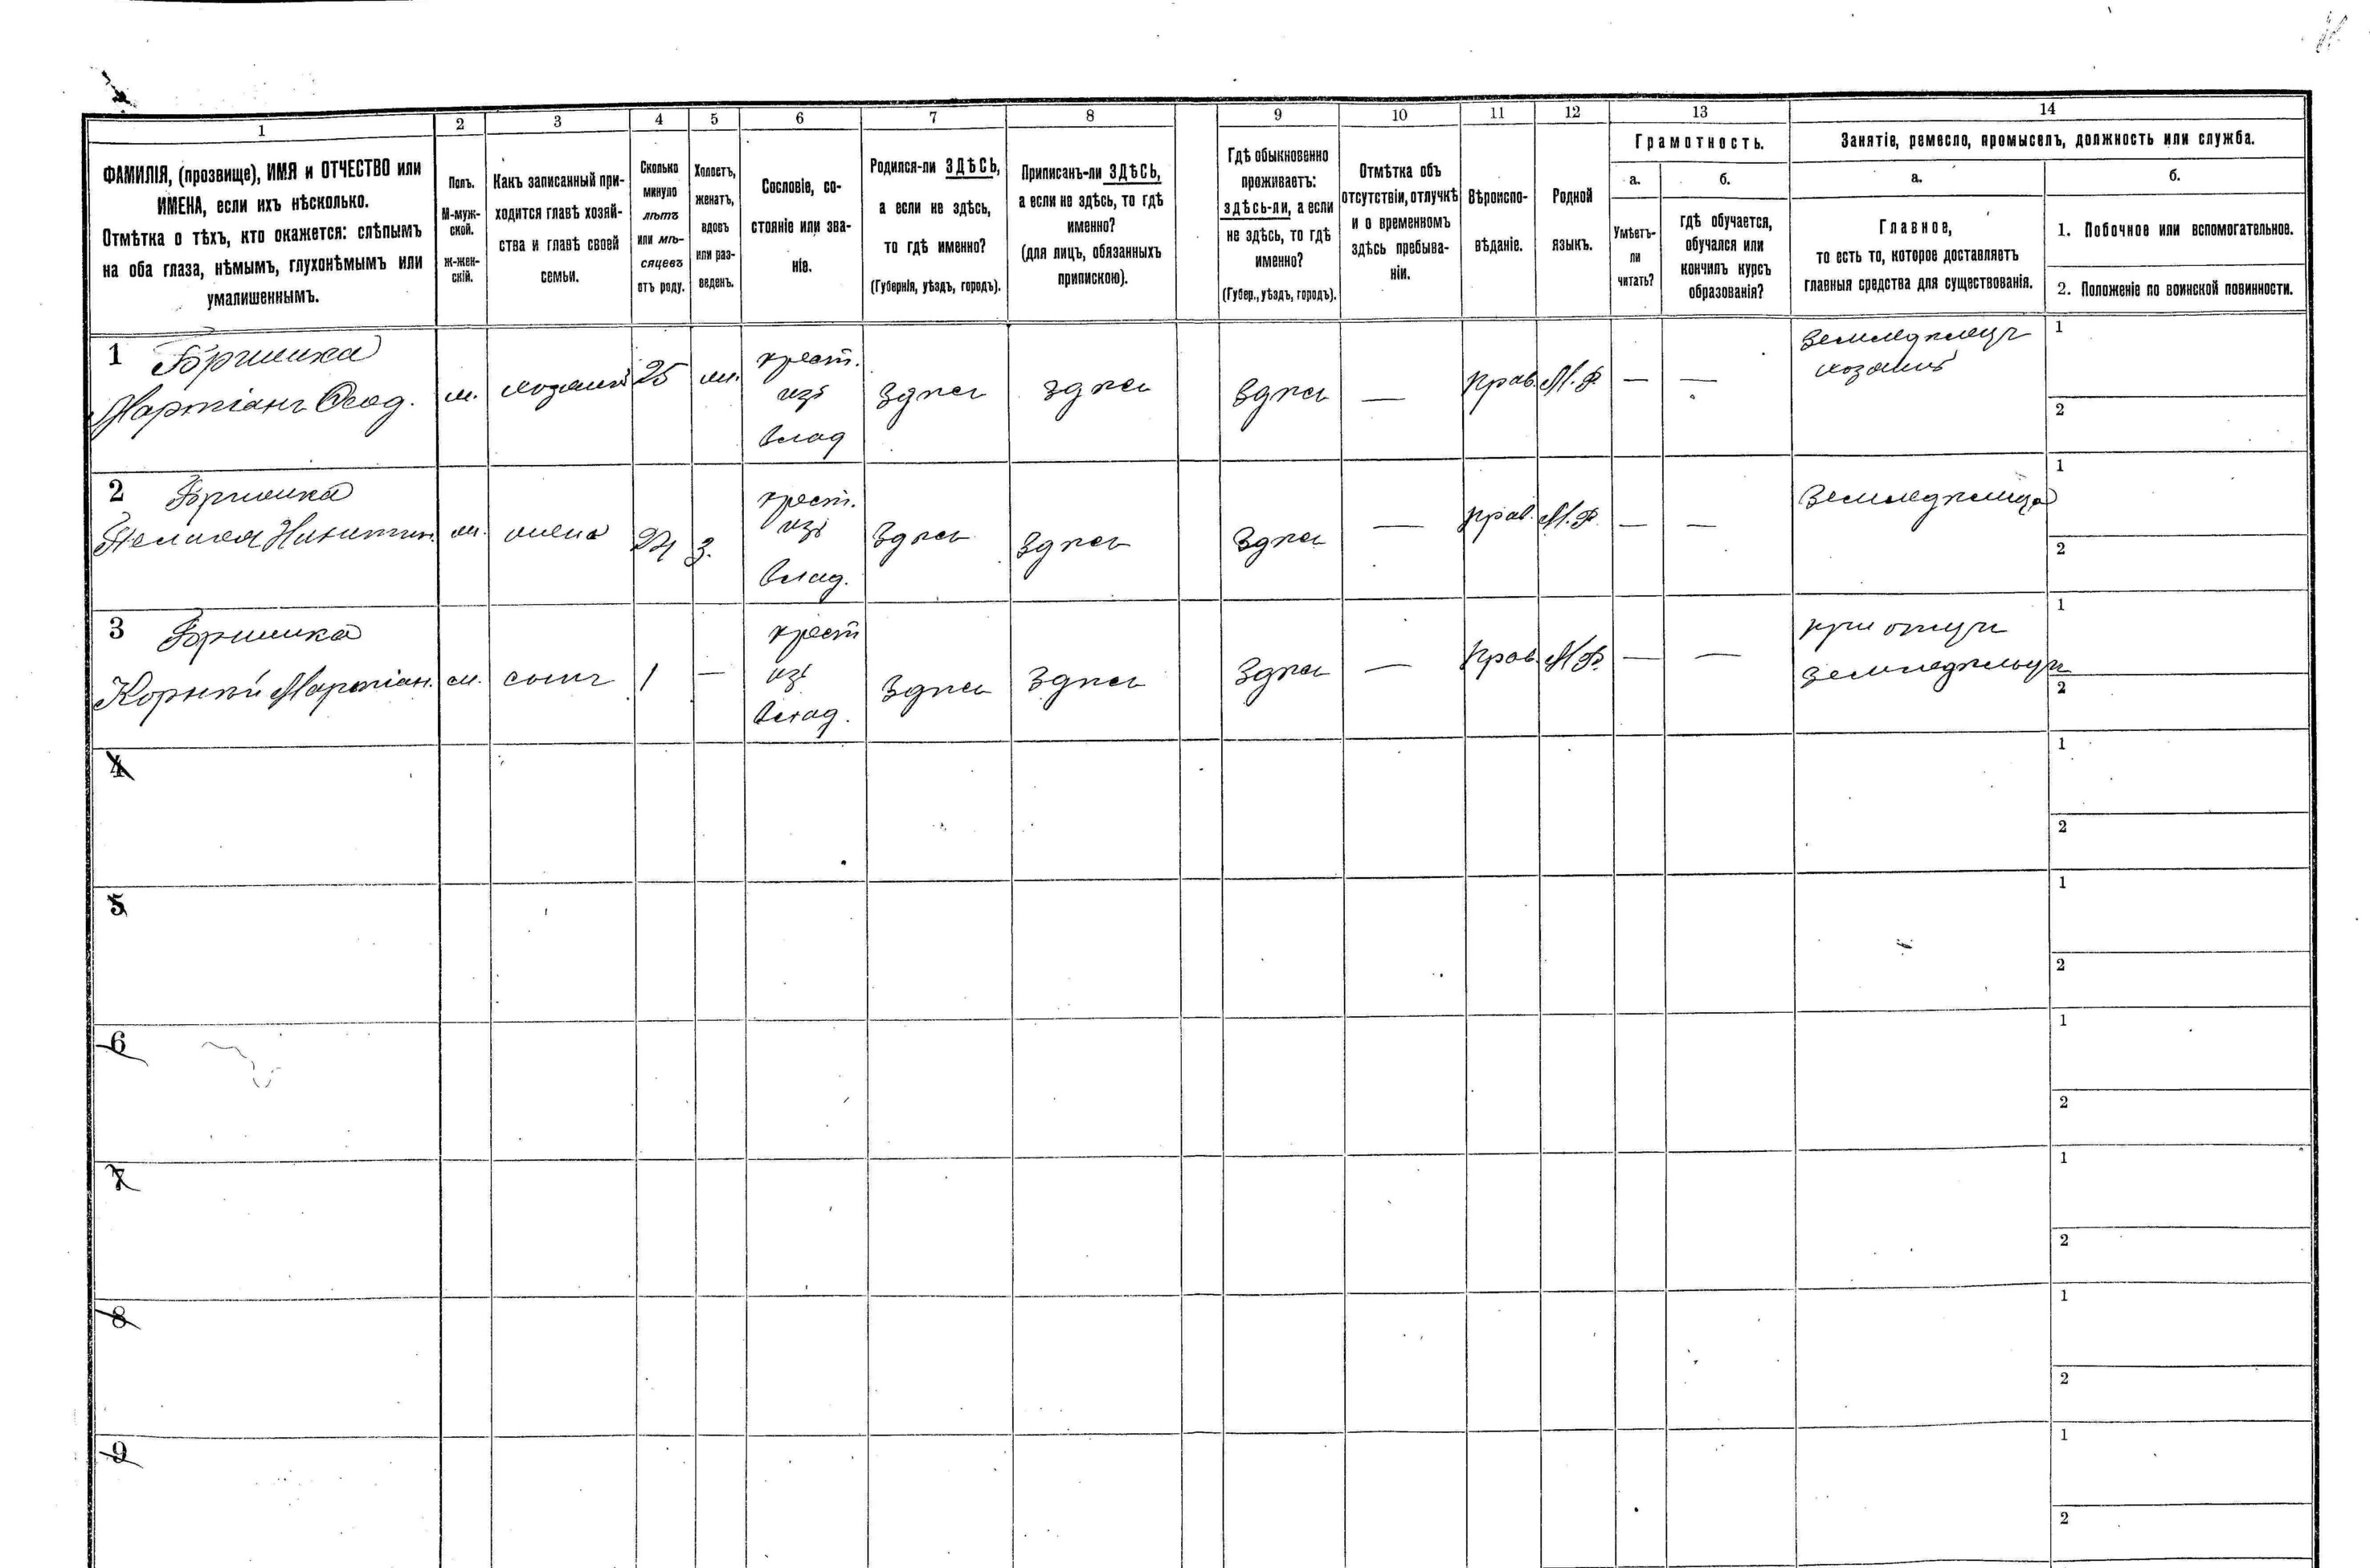 1
2
3
4
5
6
7
8
9
10
11
12
13
14
ФАМИЛІЯ, (прозвище), ИМЯ и ОТЧЕСТВО или
ИМЕНА, если ихъ нѣсколько.
Отмѣтка о тѣхъ, кто окажется: слѣпымъ
на оба глаза, нѣмымъ, глухонѣмымъ или
умалишеннымъ.
Полъ.
М-муж-
ской.
ж-жен-
скій.
Какъ записанный при-
ходится главѣ хозяй-
ства и главѣ своей
семьи.
Сколько
минуло
лѣтъ
или мѣ-
сяцевъ
отъ роду.
Холостъ,
женатъ,
вдовъ
или раз-
веденъ.
Сословіе, со-
стояніе или зва-
ніе.
Родился-ли ЗДѢСЬ,
а если не здѣсь,
то гдѣ именно?
(Губернія, уѣздъ, городъ).
Приписанъ-ли ЗДѢСЬ,
а если не здѣсь, то гдѣ
именно?
(для лицъ, обязанныхъ
припискою).
Гдѣ обыкновенно
проживаетъ:
здѣсь-ли, а если
не здѣсь, то гдѣ
именно?
(Губер., уѣздъ, городъ).
Отмѣтка объ
отсутствіи, отлучкѣ
и о временномъ
здѣсь пребыва-
ніи.
Вѣроиспо-
вѣданіе.
Родной
языкъ.
Грамотность.
а.
Умѣетъ-
ли
читать?
б.
гдѣ обучается,
обучался или
кончилъ курсъ
образованія?
Занятіе, ремесло, промыселъ, должность или служба.
а.
Главное,
то есть то, которое доставляетъ
главныя средства для существованія.
б.
1. Побочное или вспомогательное.
2. Положеніе по воинской повинности.
1
Мартіанъ
м. хозяинъ 25 ж.
крест.
изъ
влад
здѣсь здѣсь здѣсь — прав. М.Р. — —
земледѣлецъ
хозяинъ
1
2
2
Пелагея Никитин.
жена 24 з.
крест.
изъ
влад.
здѣсь здѣсь здѣсь — прав. М.Р. — —
земледѣлица
1
2
3
Корнѣй Мартіан.
м. сынъ 1 —
крест
изъ
влад.
здѣсь здѣсь здѣсь — прав. М.Р. — —
при отцѣ
земледѣльцѣ
1
2
4
1
2
5
1
2
6
1
2
7
1
2
8
1
2
9
1
2